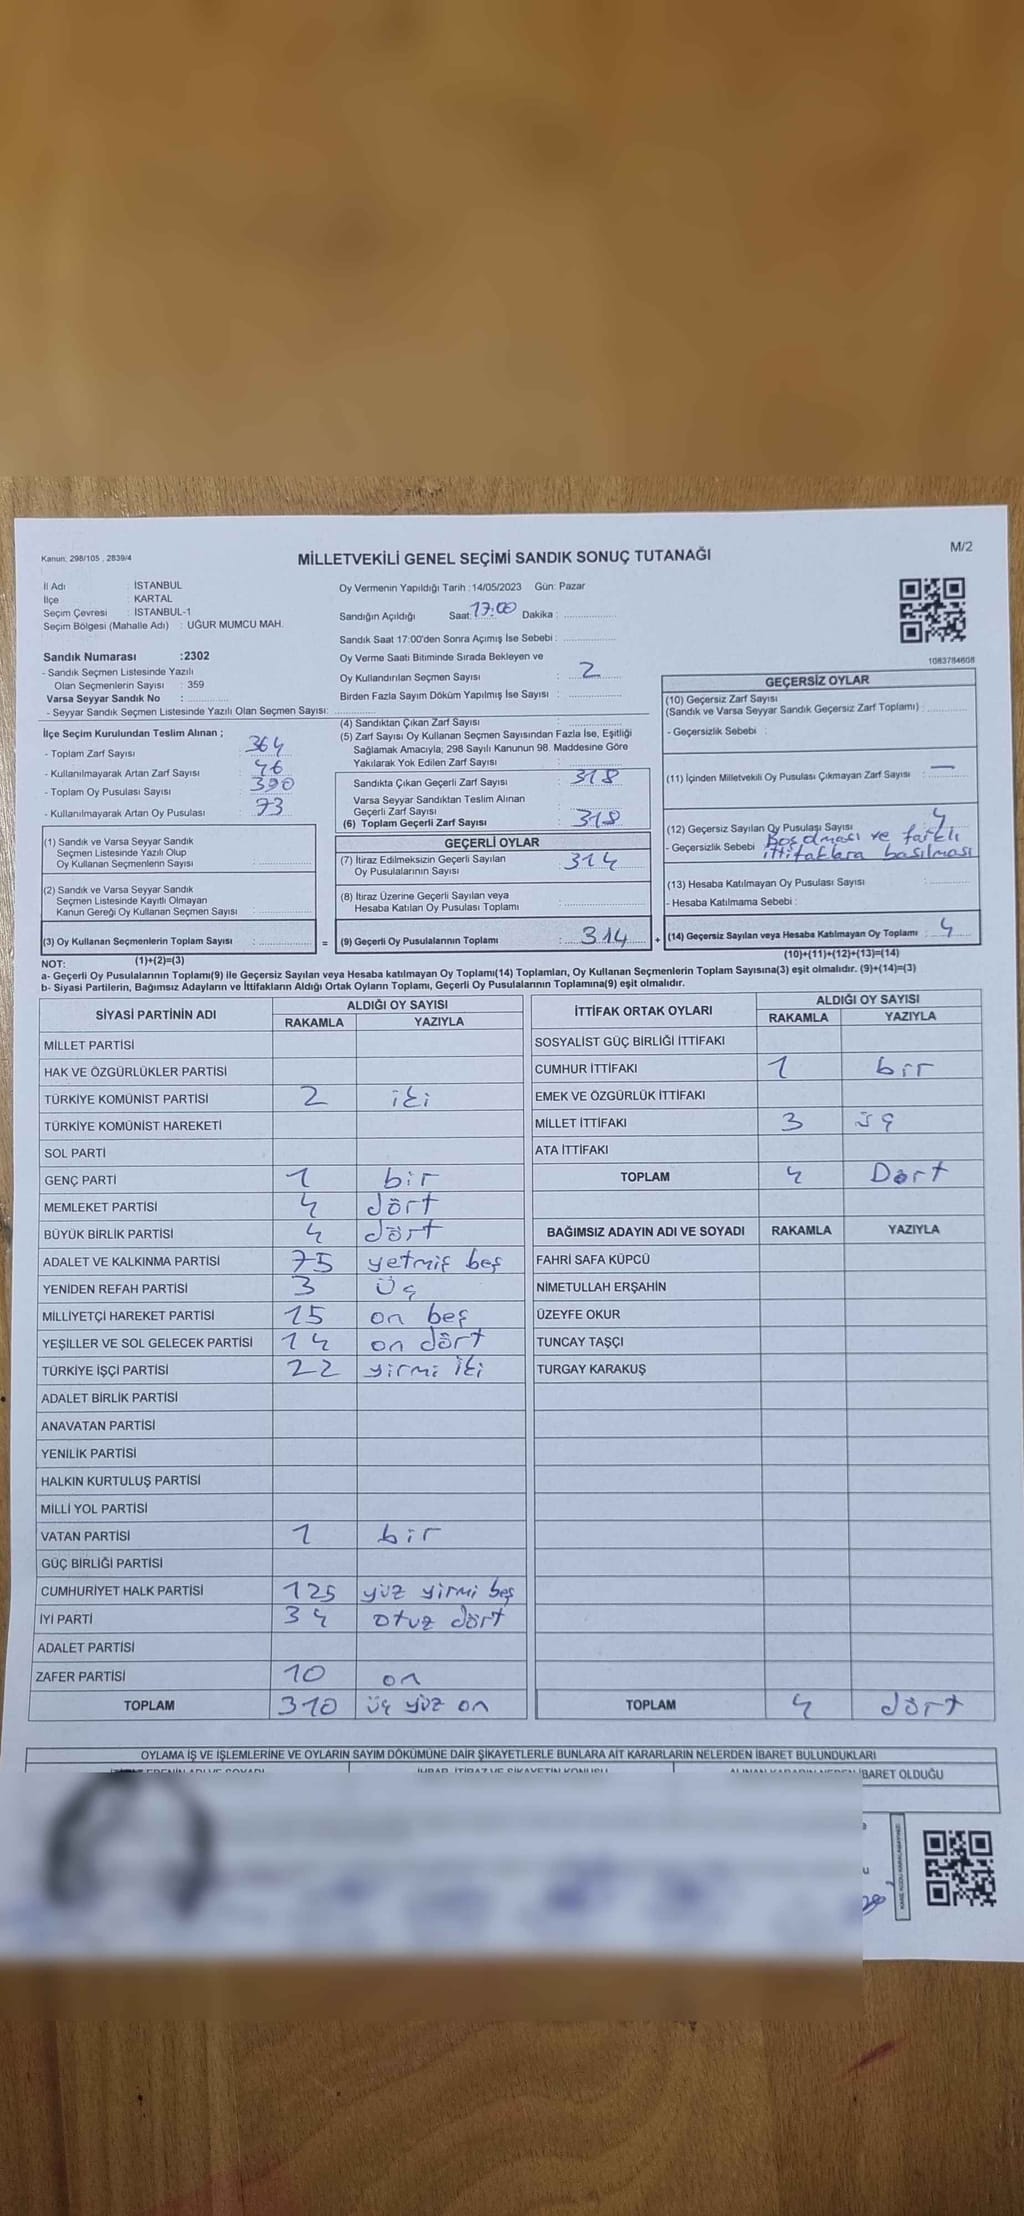 Kanun: 298/105 , 2839/4
MİLLETVEKİLİ GENEL SEÇİMİ SANDIK SONUÇ TUTANAĞI
M/2
İl Adı : İSTANBUL
İlçe : KARTAL
Seçim Çevresi : İSTANBUL-1
Seçim Bölgesi (Mahalle Adı) : UĞUR MUMCU MAH.
Sandık Numarası :2302
- Sandık Seçmen Listesinde Yazılı
Olan Seçmenlerin Sayısı : 359
Varsa Seyyar Sandık No :
- Seyyar Sandık Seçmen Listesinde Yazılı Olan Seçmen Sayısı:
Oy Vermenin Yapıldığı Tarih : 14/05/2023 Gün: Pazar
Sandığın Açıldığı Saat: 17:00 Dakika :
Sandık Saat 17:00'den Sonra Açımış İse Sebebi :
Oy Verme Saati Bitiminde Sırada Bekleyen ve
Oy Kullandırılan Seçmen Sayısı : 2
Birden Fazla Sayım Döküm Yapılmış İse Sayısı :
1083784608
İlçe Seçim Kurulundan Teslim Alınan ;
- Toplam Zarf Sayısı : 364
- Kullanılmayarak Artan Zarf Sayısı : 46
- Toplam Oy Pusulası Sayısı : 390
- Kullanılmayarak Artan Oy Pusulası : 73
(1) Sandık ve Varsa Seyyar Sandık
Seçmen Listesinde Yazılı Olup
Oy Kullanan Seçmenlerin Sayısı :
(2) Sandık ve Varsa Seyyar Sandık
Seçmen Listesinde Kayıtlı Olmayan
Kanun Gereği Oy Kullanan Seçmen Sayısı :
(3) Oy Kullanan Seçmenlerin Toplam Sayısı :
(4) Sandıktan Çıkan Zarf Sayısı :
(5) Zarf Sayısı Oy Kullanan Seçmen Sayısından Fazla İse, Eşitliği
Sağlamak Amacıyla; 298 Sayılı Kanunun 98. Maddesine Göre
Yakılarak Yok Edilen Zarf Sayısı :
Sandıkta Çıkan Geçerli Zarf Sayısı : 318
Varsa Seyyar Sandıktan Teslim Alınan
Geçerli Zarf Sayısı :
(6) Toplam Geçerli Zarf Sayısı : 318
GEÇERLİ OYLAR
(7) İtiraz Edilmeksizin Geçerli Sayılan
Oy Pusulalarının Sayısı : 314
(8) İtiraz Üzerine Geçerli Sayılan veya
Hesaba Katılan Oy Pusulası Toplamı :
= (9) Geçerli Oy Pusulalarının Toplamı : 314 +
GEÇERSİZ OYLAR
(10) Geçersiz Zarf Sayısı
(Sandık ve Varsa Seyyar Sandık Geçersiz Zarf Toplamı) :
- Geçersizlik Sebebi :
(11) İçinden Milletvekili Oy Pusulası Çıkmayan Zarf Sayısı : —
(12) Geçersiz Sayılan Oy Pusulası Sayısı : 4
- Geçersizlik Sebebi : Boş olması ve farklı
ittifaklara basılması
(13) Hesaba Katılmayan Oy Pusulası Sayısı :
- Hesaba Katılmama Sebebi :
(14) Geçersiz Sayılan veya Hesaba Katılmayan Oy Toplamı : 4
NOT: (1)+(2)=(3)
(10)+(11)+(12)+(13)=(14)
a- Geçerli Oy Pusulalarının Toplamı(9) ile Geçersiz Sayılan veya Hesaba katılmayan Oy Toplamı(14) Toplamları, Oy Kullanan Seçmenlerin Toplam Sayısına(3) eşit olmalıdır. (9)+(14)=(3)
b- Siyasi Partilerin, Bağımsız Adayların ve İttifakların Aldığı Ortak Oyların Toplamı, Geçerli Oy Pusulalarının Toplamına(9) eşit olmalıdır.
SİYASİ PARTİNİN ADI ALDIĞI OY SAYISI
RAKAMLA YAZIYLA
MİLLET PARTİSİ
HAK VE ÖZGÜRLÜKLER PARTİSİ
TÜRKİYE KOMÜNİST PARTİSİ 2 iki
TÜRKİYE KOMÜNİST HAREKETİ
SOL PARTİ
GENÇ PARTİ 1 bir
MEMLEKET PARTİSİ 4 dört
BÜYÜK BİRLİK PARTİSİ 4 dört
ADALET VE KALKINMA PARTİSİ 75 yetmiş beş
YENİDEN REFAH PARTİSİ 3 Üç
MİLLİYETÇİ HAREKET PARTİSİ 15 on beş
YEŞİLLER VE SOL GELECEK PARTİSİ 14 on dört
TÜRKİYE İŞÇİ PARTİSİ 22 yirmi iki
ADALET BİRLİK PARTİSİ
ANAVATAN PARTİSİ
YENİLİK PARTİSİ
HALKIN KURTULUŞ PARTİSİ
MİLLİ YOL PARTİSİ
VATAN PARTİSİ 1 bir
GÜÇ BİRLİĞİ PARTİSİ
CUMHURİYET HALK PARTİSİ 125 yüz yirmi beş
İYİ PARTİ 34 otuz dört
ADALET PARTİSİ
ZAFER PARTİSİ 10 on
TOPLAM 310 üç yüz on
İTTİFAK ORTAK OYLARI ALDIĞI OY SAYISI
RAKAMLA YAZIYLA
SOSYALİST GÜÇ BİRLİĞİ İTTİFAKI
CUMHUR İTTİFAKI 1 bir
EMEK VE ÖZGÜRLÜK İTTİFAKI
MİLLET İTTİFAKI 3 üç
ATA İTTİFAKI
TOPLAM 4 Dört
BAĞIMSIZ ADAYIN ADI VE SOYADI RAKAMLA YAZIYLA
FAHRİ SAFA KÜPCÜ
NİMETULLAH ERŞAHİN
ÜZEYFE OKUR
TUNCAY TAŞÇI
TURGAY KARAKUŞ
TOPLAM 4 dört
OYLAMA İŞ VE İŞLEMLERİNE VE OYLARIN SAYIM DÖKÜMÜNE DAİR ŞİKAYETLERLE BUNLARA AİT KARARLARIN NELERDEN İBARET BULUNDUKLARI
İHBAR, İTİRAZ VE ŞİKAYETİN KONUSU
İBARET OLDUĞU